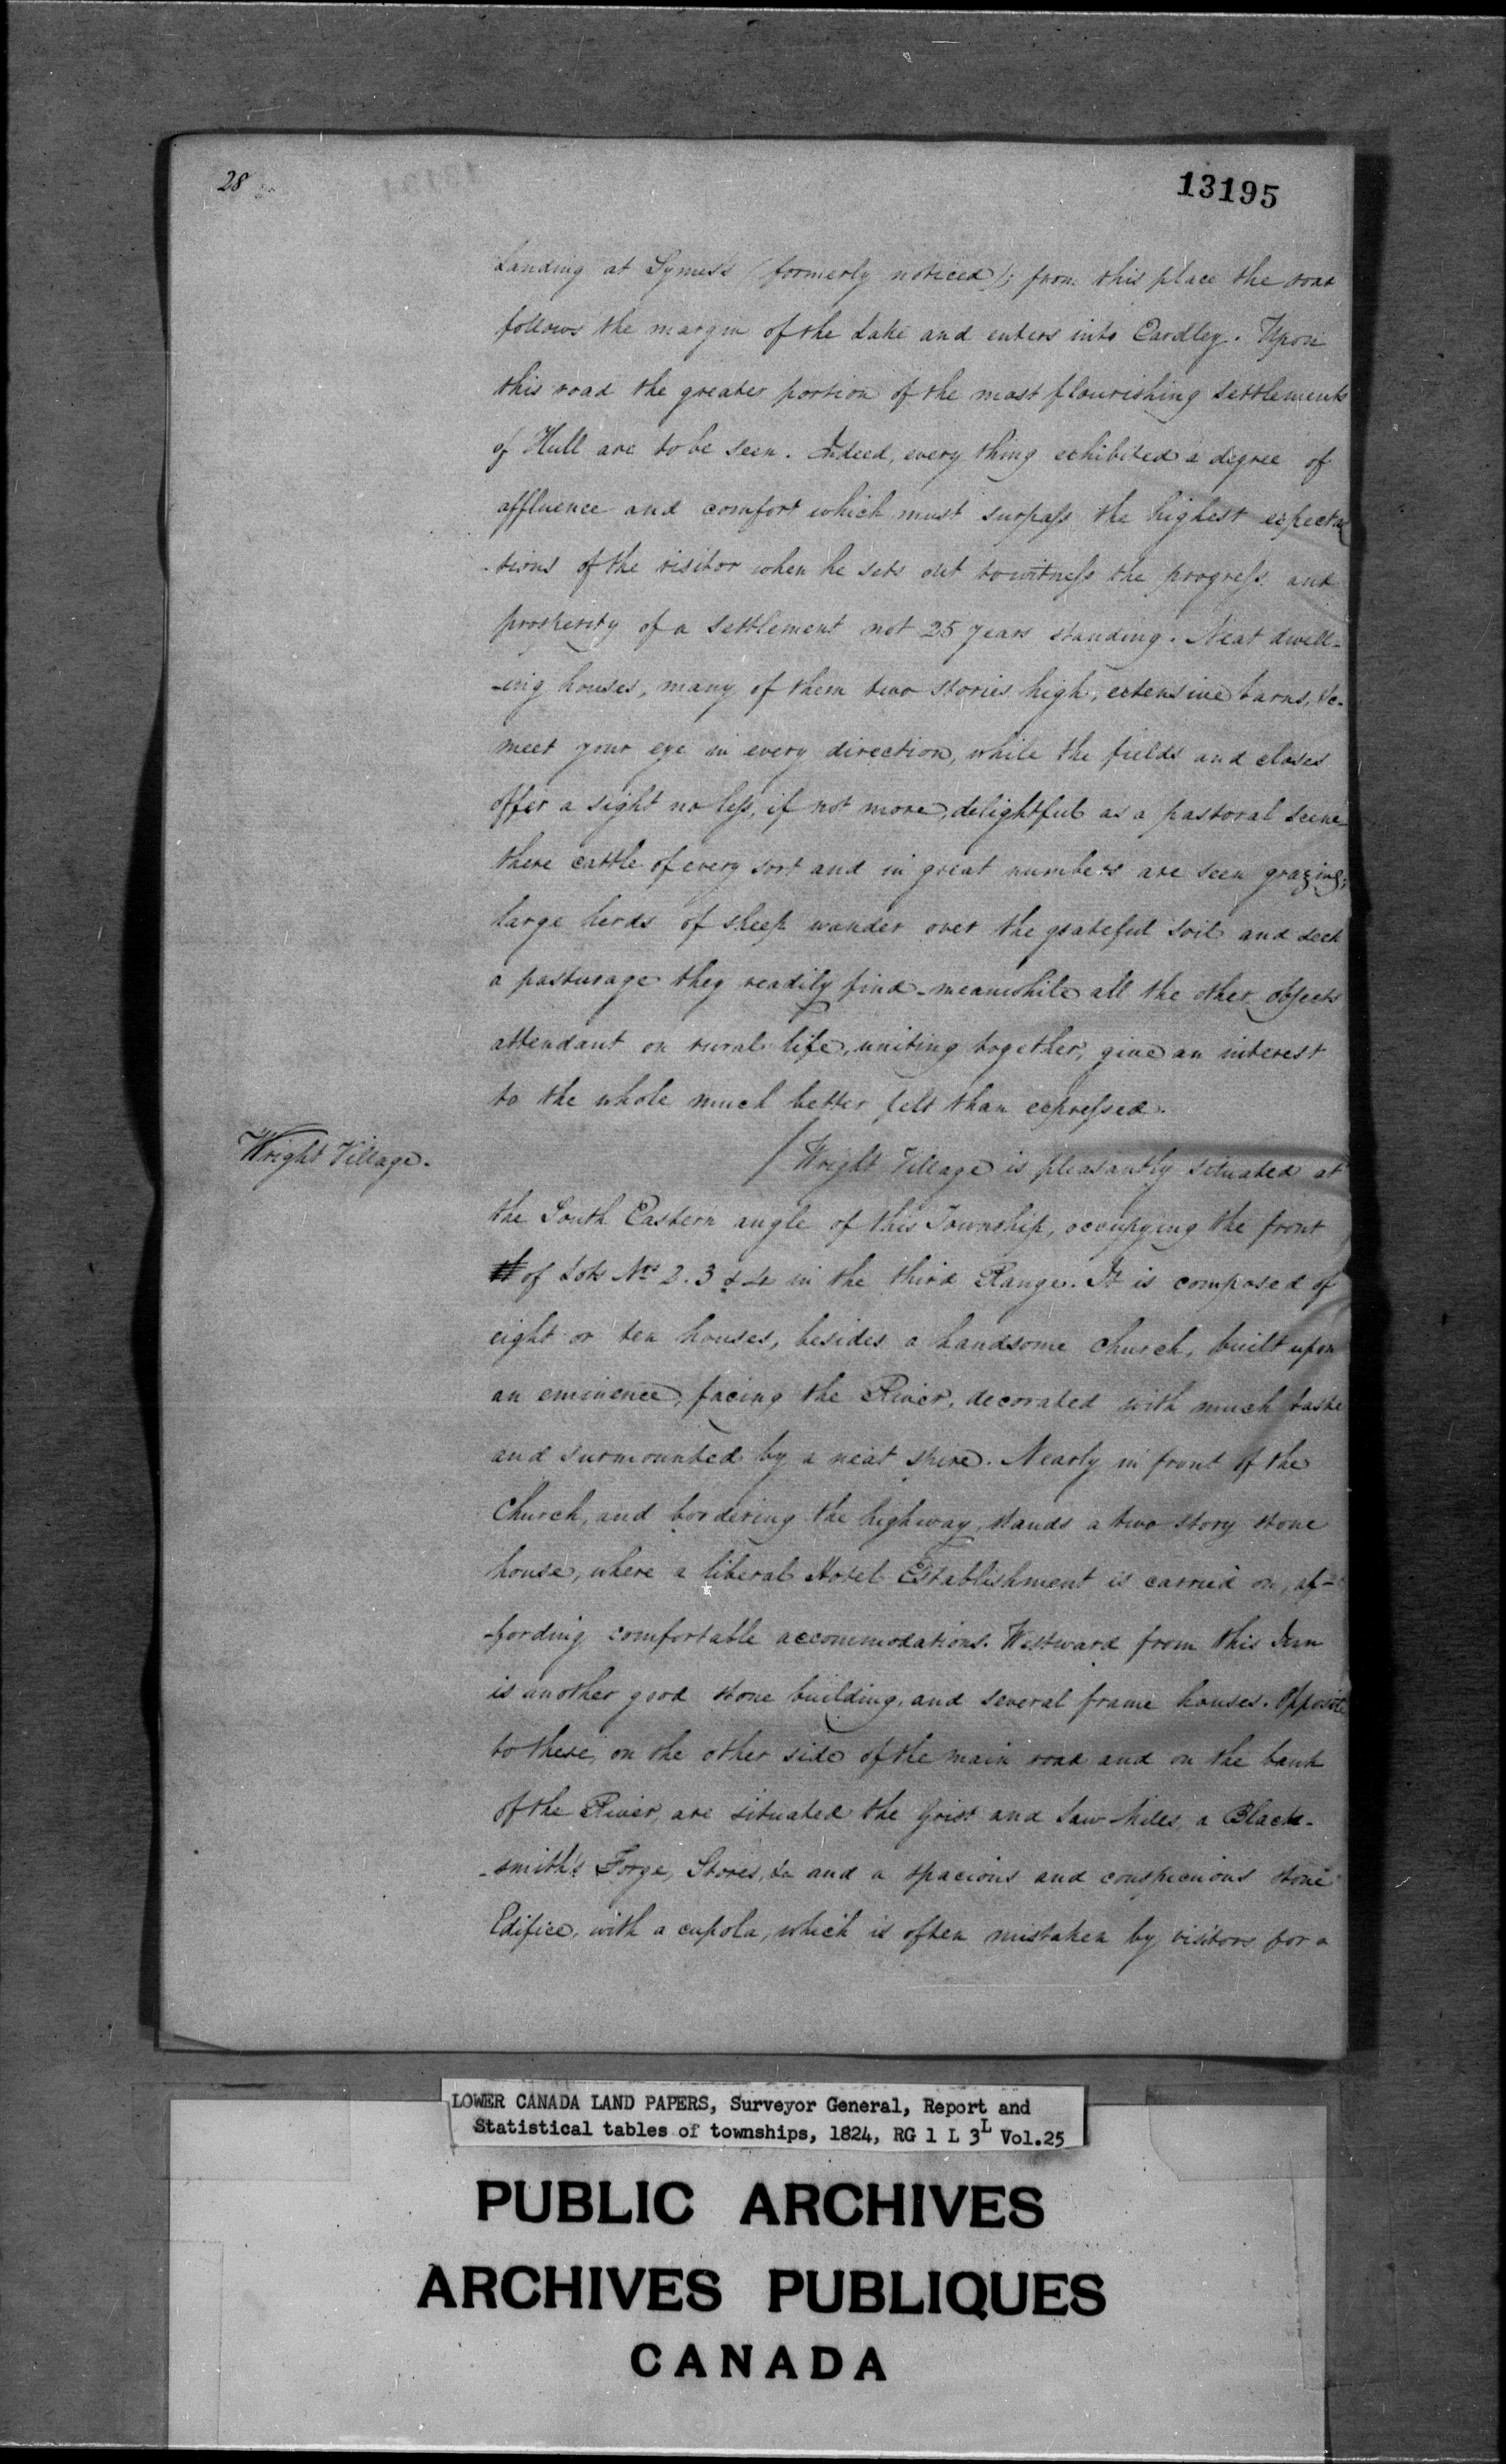 28
13195
Landing at Symes's (formerly noticed); from this place the road
follows the margin of the Lake and enters into Eardley. Upon
this road the greater portion of the most flourishing settlements
of Hull are to be seen. Indeed, every thing exhibited a degree of
affluence and comfort which must surpass the highest expecta
-tions of the visitor when he sets out to witness the progress and
prosperity of a settlement not 25 years standing. Neat dwell-
-ing houses, many of them two stories high, extensive barns, &c.
meet your eye in every direction, while the fields and closes
offer a sight no less, if not more, delightful as a pastoral scene
there cattle of every sort and in great numbers are seen grazing;
large herds of sheep wander over the grateful soil and seek
a pasturage they readily find - meanwhile all the other objects
attendant on rural life, uniting together, give an interest
to the whole much better felt than expressed.
Wright Village.
/ Wright Village is pleasantly situated at
the South Eastern angle of this Township, occupying the front
of Lots Nos 2. 3 & 4 in the third Range. It is composed of
eight or ten houses, besides a handsome church, built upon
an eminence, facing the River, decorated with much taste
and surmounted by a neat spire. Nearly in front of the
Church, and bordering the highway, stands a two story stone
house, where a liberal Hotel Establishment is carried on, af-
-fording comfortable accommodations. Westward from this Inn
is another good stone building, and several frame houses. Opposite
to these, on the other side of the main road and on the bank
of the River, are situated the Grist and Saw-Mills, a Black-
-smith's Forge, Stores, &c and a spacious and conspicuous stone
Edifice, with a cupola, which is often mistaken by visitors for a
LOWER CANADA LAND PAPERS, Surveyor General, Report and
Statistical tables of townships, 1824, RG 1 L 3L Vol.25
PUBLIC ARCHIVES
ARCHIVES PUBLIQUES
CANADA